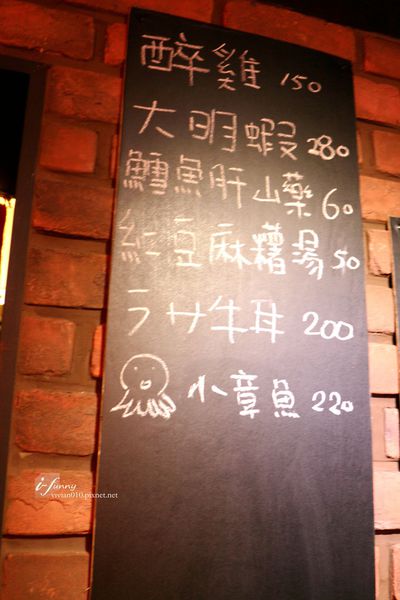 醉雞 150
大明蝦 280
鱈魚肝山藥 60
紅豆麻糬湯 50
ラサ牛耳 200
小章魚 220
i-funny
vivian010.pixnet.net